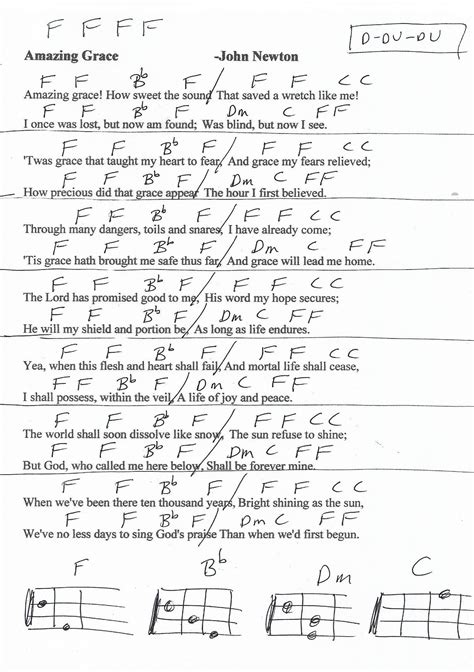 F F F F
D-DU-DU
Amazing Grace -John Newton
F F Bb F / F F C C
Amazing grace! How sweet the sound That saved a wretch like me!
F F Bb F / Dm C F F
I once was lost, but now am found; Was blind, but now I see.
F F Bb F / F F C C
'Twas grace that taught my heart to fear, And grace my fears relieved;
F F Bb F / Dm C F F
How precious did that grace appear The hour I first believed.
F F Bb F / F F C C
Through many dangers, toils and snares, I have already come;
F F Bb F / Dm C F F
'Tis grace hath brought me safe thus far, And grace will lead me home.
F F Bb F / F F C C
The Lord has promised good to me, His word my hope secures;
F F Bb F / Dm C F F
He will my shield and portion be, As long as life endures.
F F Bb F / F F C C
Yea, when this flesh and heart shall fail, And mortal life shall cease,
F F Bb F / Dm C F F
I shall possess, within the veil, A life of joy and peace.
F F Bb F / F F C C
The world shall soon dissolve like snow, The sun refuse to shine;
F F Bb F / Dm C F F
But God, who called me here below, Shall be forever mine.
F F Bb F / F F C C
When we've been there ten thousand years, Bright shining as the sun,
F F Bb F / Dm C F F
We've no less days to sing God's praise Than when we'd first begun.
F Bb Dm C